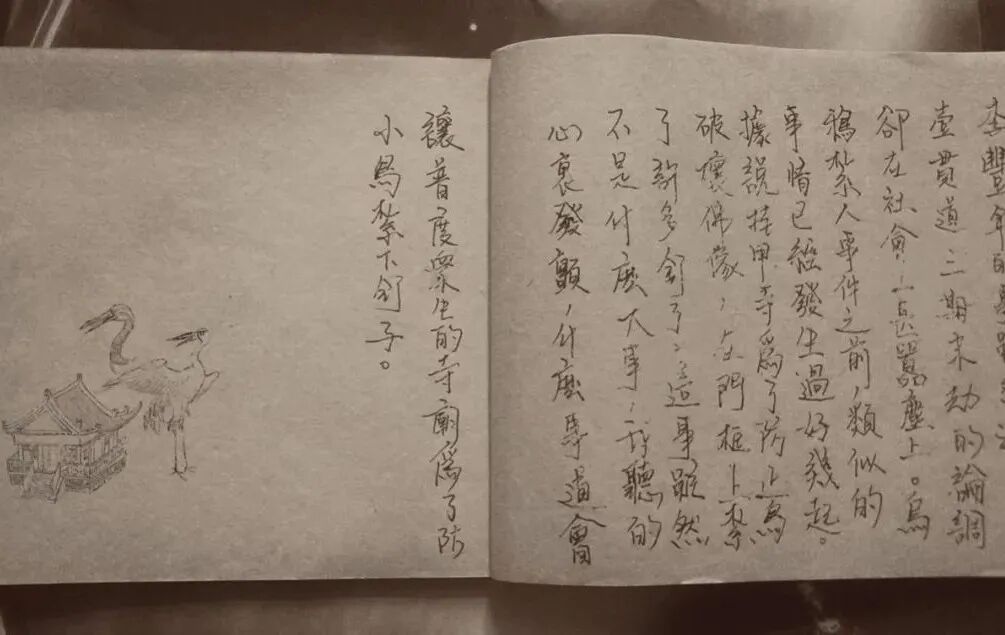 李豐年的
壹貫道三期末劫的論調
卻在社會上甚囂塵上。烏
鴉紮人事件之前，類似的
事情已經發生過好幾起。
據說持甲寺爲了防止鳥
破壞佛像，在門框上紮
了許多釘子，這事雖然
不是什麽大事，我聽的
心裏發顫，什麽道會
讓普度眾生的寺廟爲了防
小鳥紮下釘子。